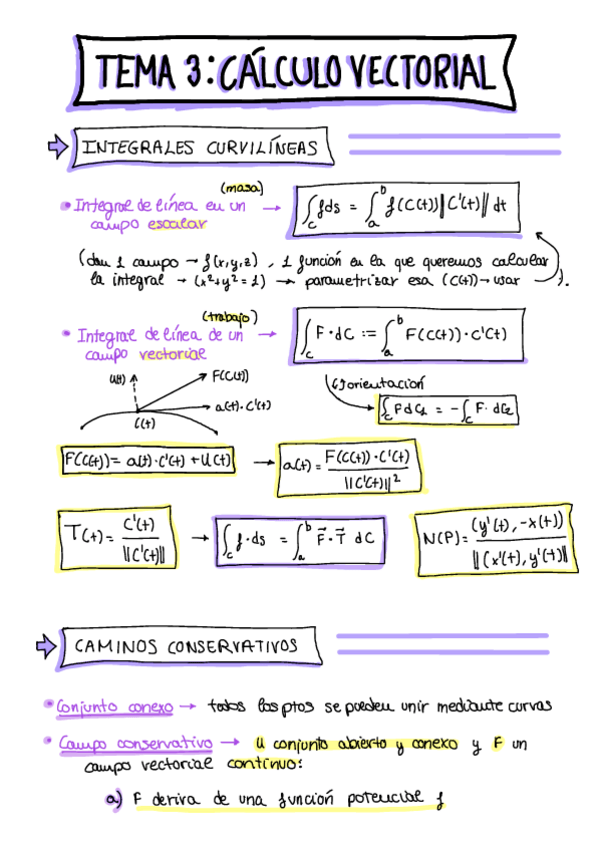 TEMA 3: CÁLCULO VECTORIAL
INTEGRALES CURVILÍNEAS
(masa)
• Integral de línea en un → ∫_C f ds = ∫_a^b f(C(t)) ||C'(t)|| dt
campo escalar
(dan 1 campo → f(x,y,z) , 1 función en la que queremos calcular
la integral → (x²+y²=1) → parametrizar esa (C(t)) → usar ).
(trabajo)
• Integral de línea de un → ∫_C F·dC := ∫_a^b F(C(t))·C'(t)
campo vectorial
U(t) F(C(t))
a(t)·C'(t)
C(t)
orientación
∫_C F dC₁ = -∫_C F·dC₂
F(C(t)) = a(t)·C'(t) + U(t) → a(t) = F(C(t))·C'(t) / ||C'(t)||²
T(t) = C'(t) / ||C'(t)|| → ∫_C f·ds = ∫_a^b F⃗·T⃗ dC N(P) = (y'(t), -x(t)) / ||(x'(t), y'(t)||
CAMINOS CONSERVATIVOS
• Conjunto conexo → todos los ptos se pueden unir mediante curvas
• Campo conservativo → U conjunto abierto y conexo y F un
campo vectorial continuo:
a) F deriva de una función potencial f